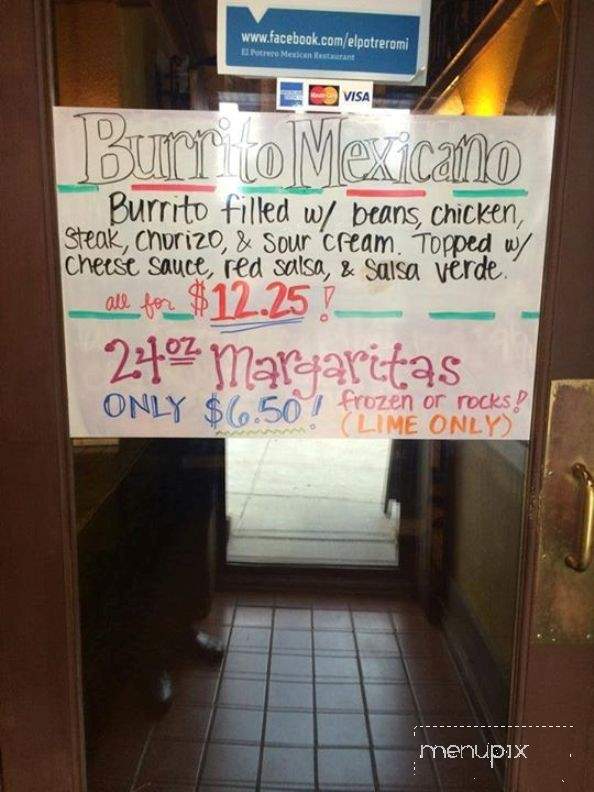 www.facebook.com/elpotreromi
El Potrero Mexican Restaurant
MasterCard VISA
Burrito Mexicano
Burrito filled w/ beans, chicken,
steak, chorizo, & sour cream. Topped w/
cheese sauce, red salsa, & salsa verde.
all for $12.25!
24oz Margaritas
ONLY $6.50! frozen or rocks!
(LIME ONLY)
menupix